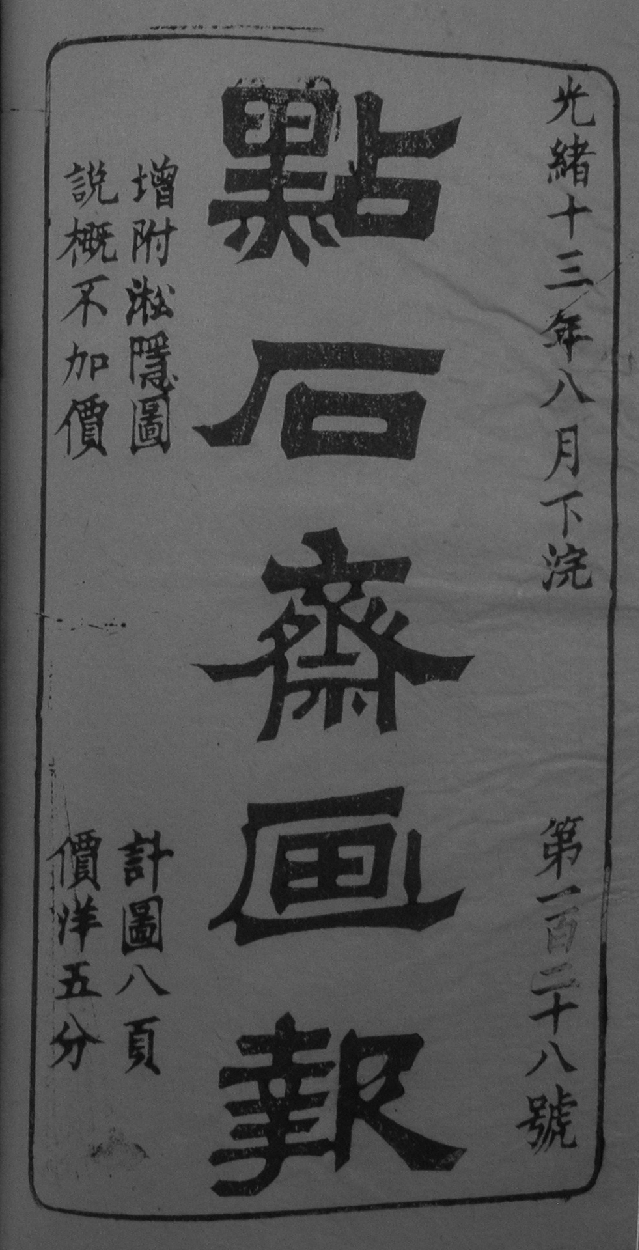 光緒十三年八月下浣
第一百二十八號
點石齋画報
增附淞隱圖
說概不加價
計圖八頁
價洋五分